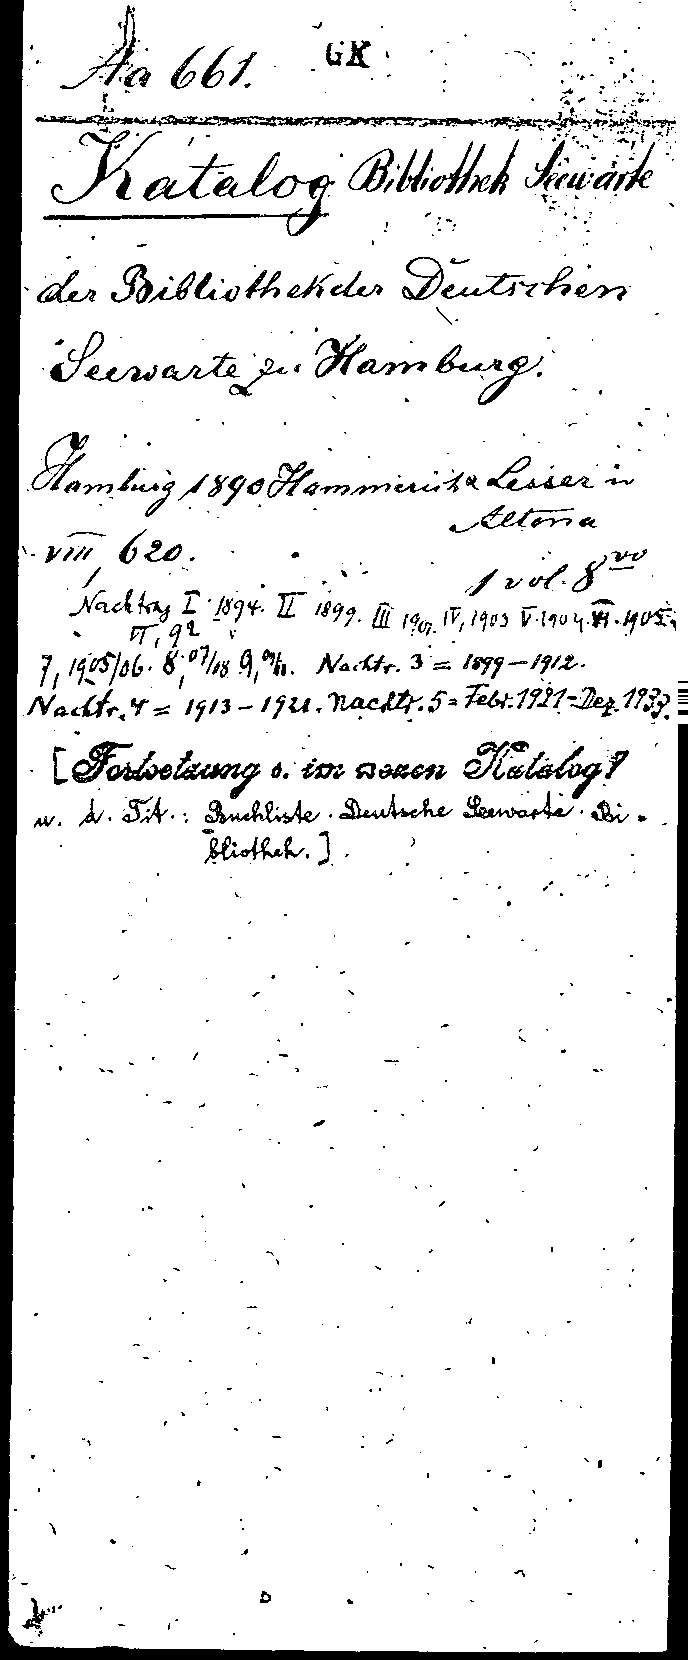 Aa 661. GK
Katalog Bibliothek Seewarte
der Bibliothek der Deutschen
Seewarte zu Hamburg.
Hamburg 1890 Hammerich & Lesser in
Altona
VIII, 620.
1 vol. 8vo
Nachtrag I 1894. II 1899. III 1901. IV, 1903 V. 1904. VI. 1905.
VI, 92
7, 1905/06. 8, 07/08 9, 09/11. Nachtr. 3 = 1899-1912.
Nachtr. 4 = 1913-1921. Nachtr. 5 = Febr. 1921-Dez. 1933.
[Fortsetzung s. im neuen Katalog!
u. d. Tit.: Buchliste. Deutsche Seewarte. Bi-
bliothek.]